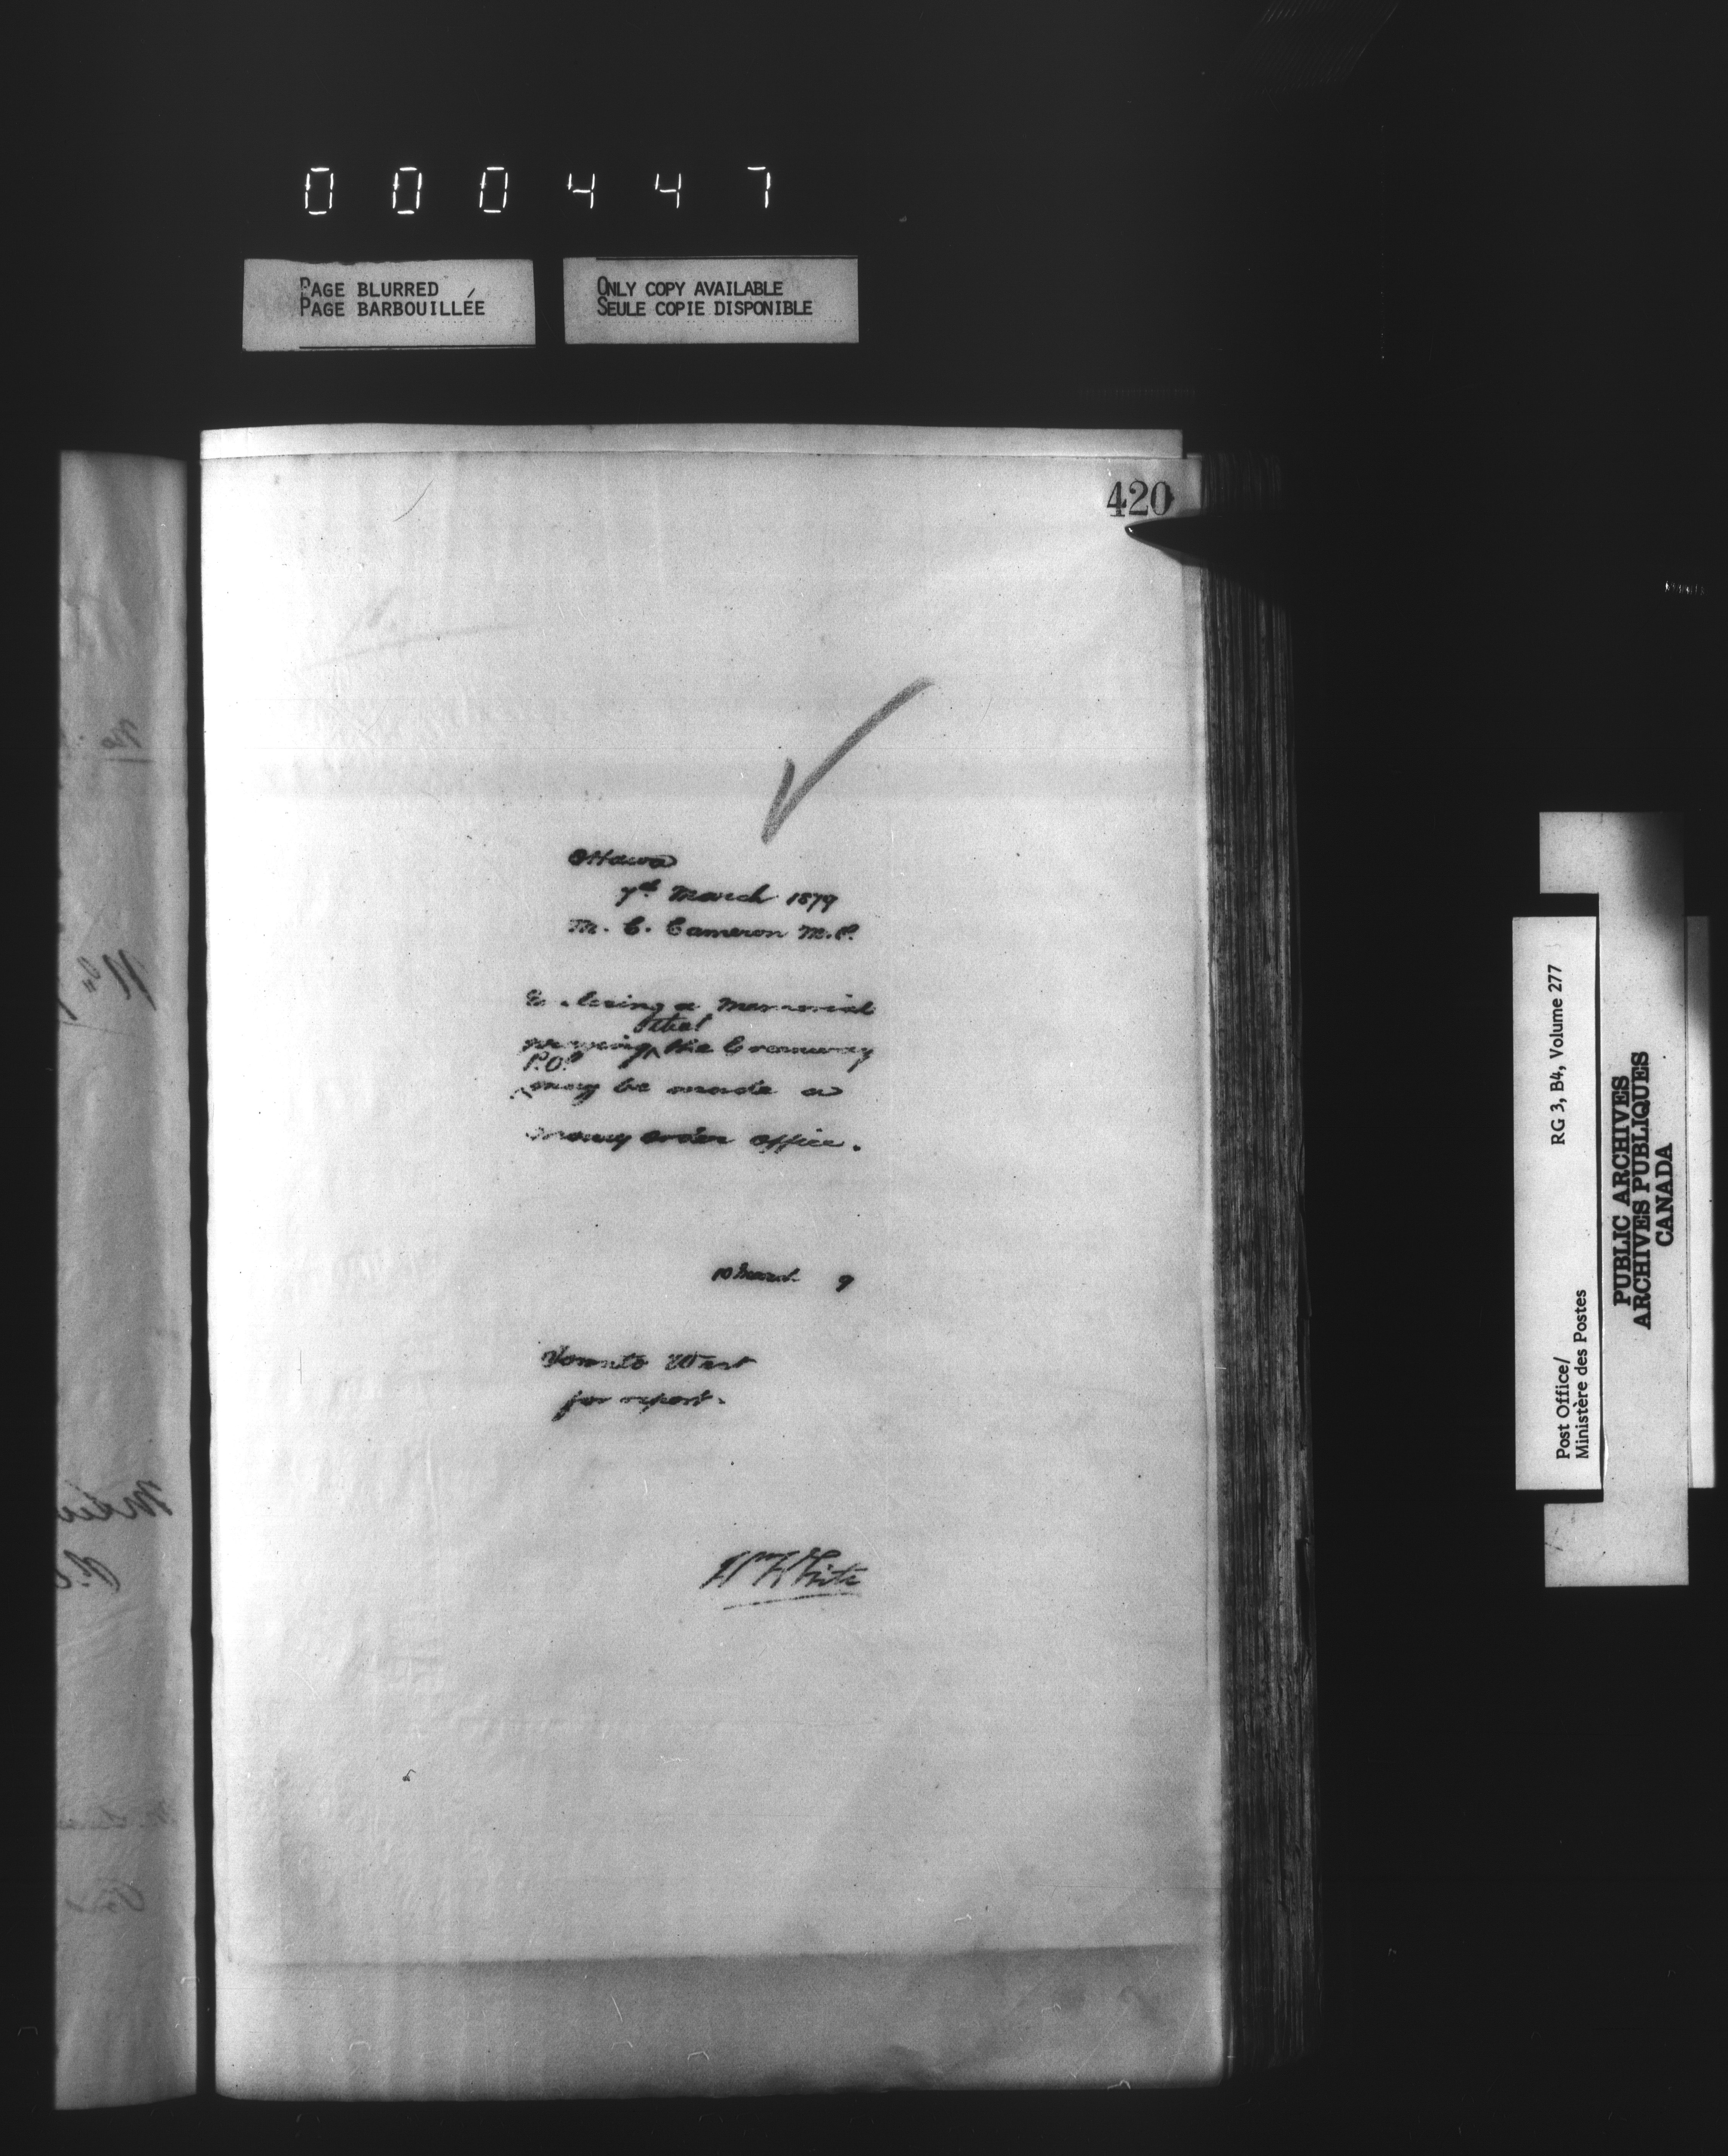 000447
PAGE BLURRED
PAGE BARBOUILLÉE
ONLY COPY AVAILABLE
SEULE COPIE DISPONIBLE
420
Ottawa
7th March 1879
M. C. Cameron M.P.
Enclosing a Memorial
that
praying the
P.O.
may be made a
money order office.
10 March 9
Toronto West
for report.
White
RG 3, B4, Volume 277
Post Office/
Ministère des Postes
PUBLIC ARCHIVES
ARCHIVES PUBLIQUES
CANADA